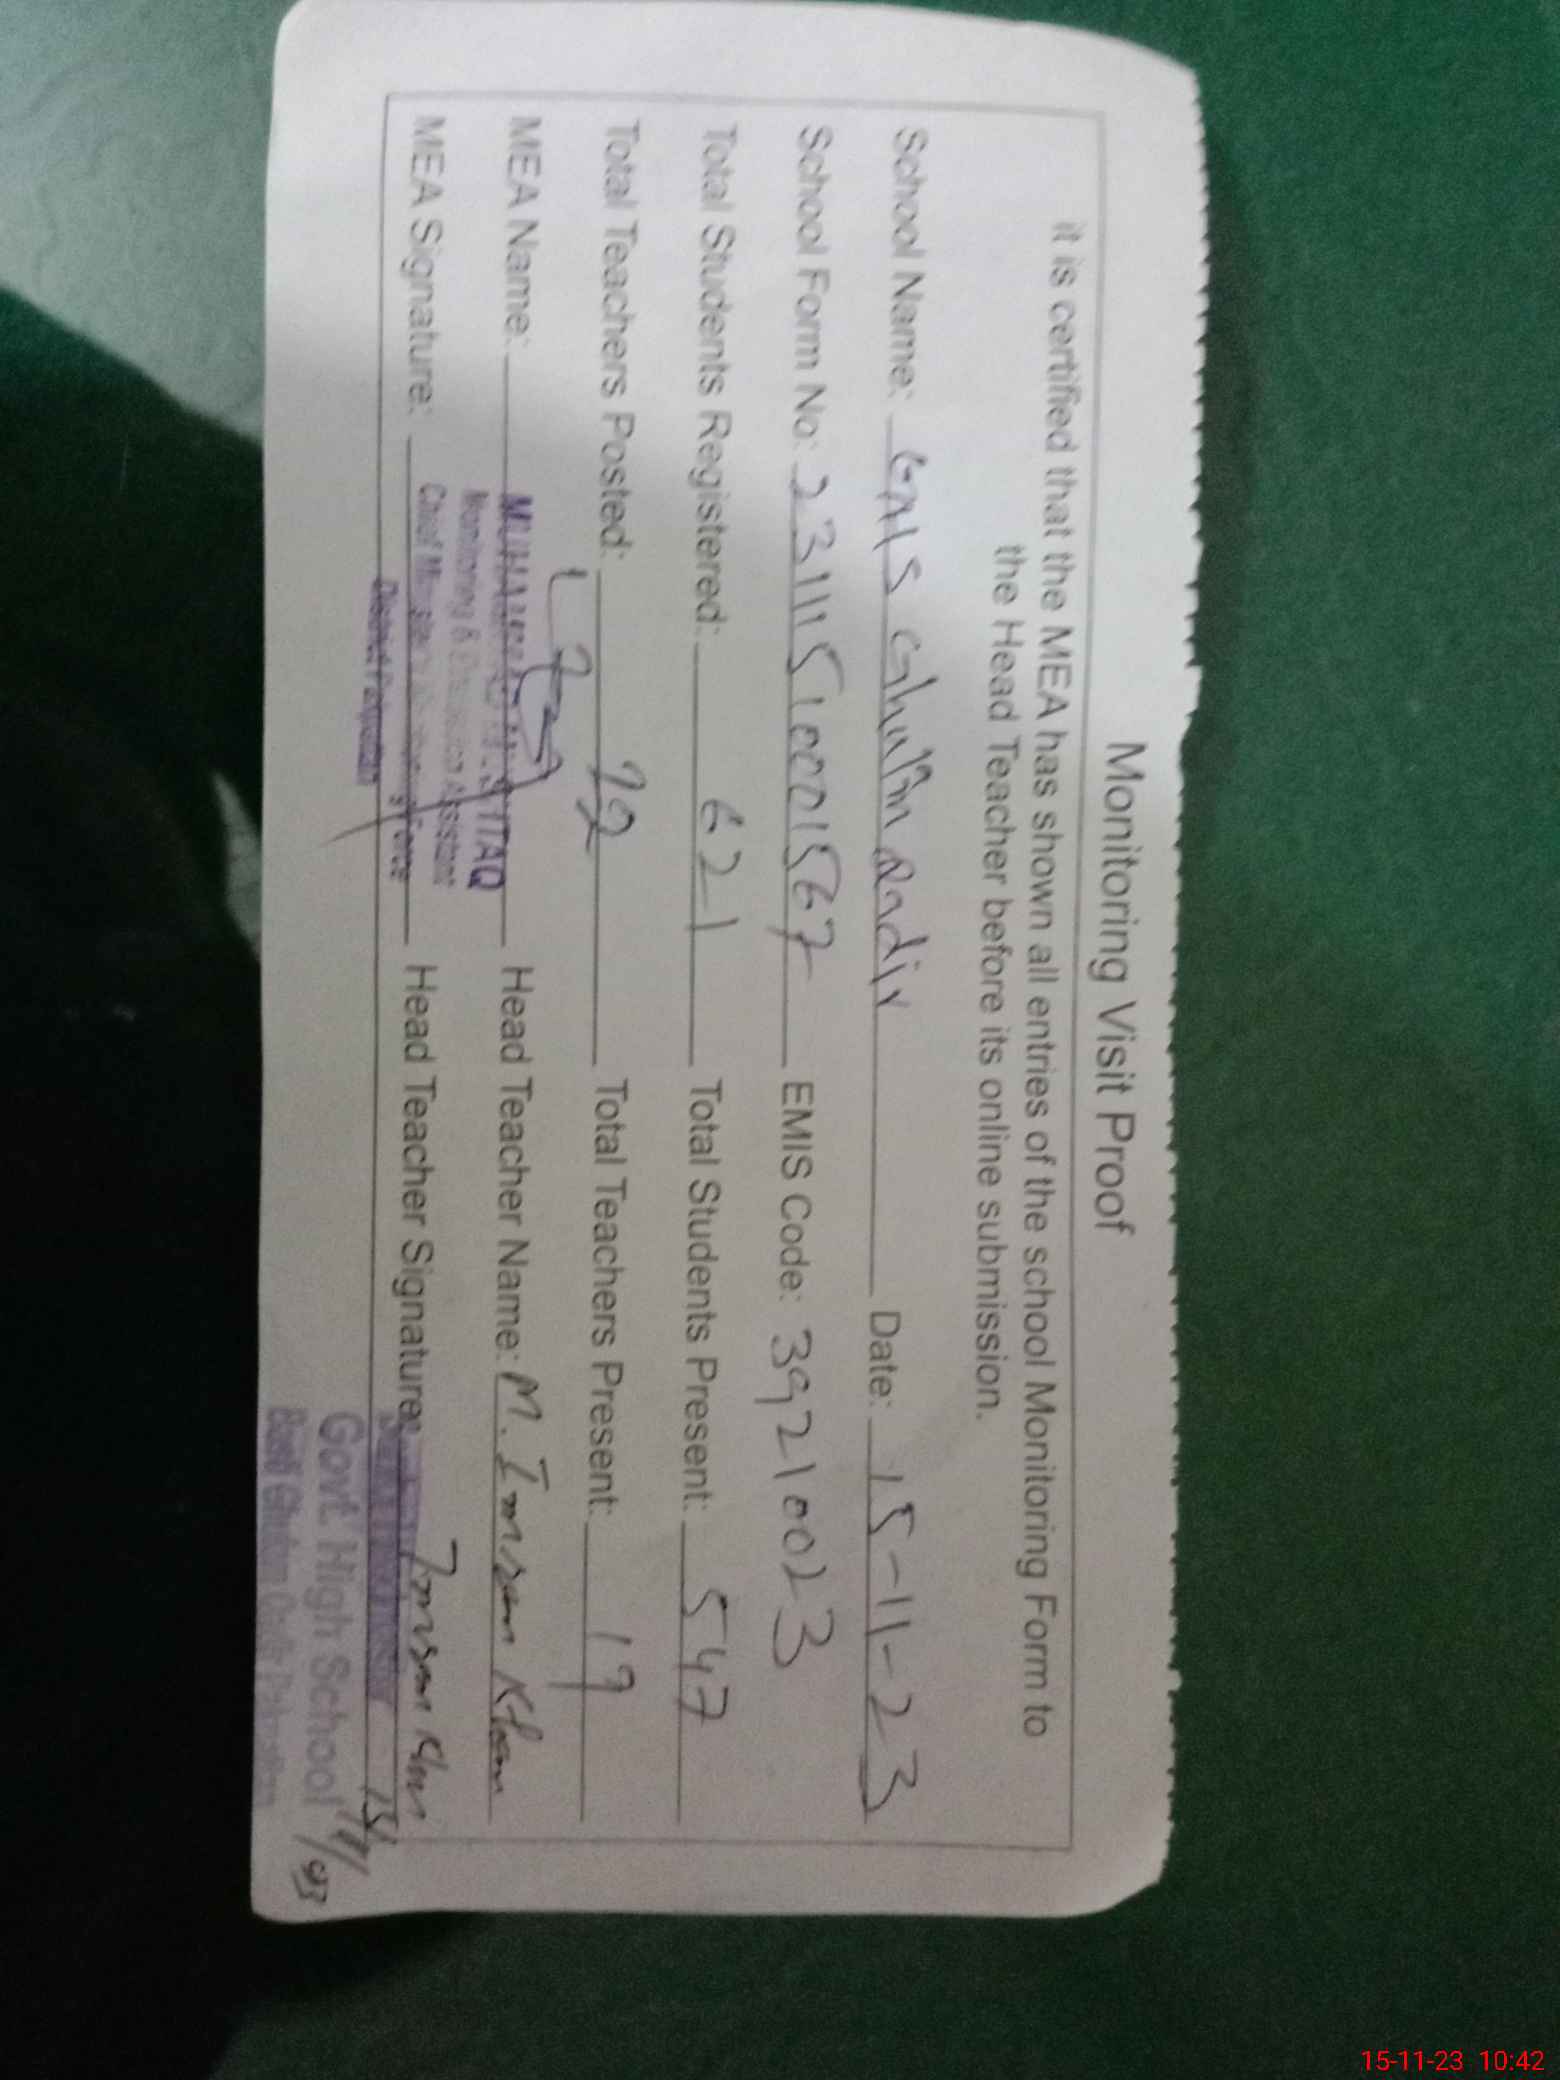 Monitoring Visit Proof
it is certified that the MEA has shown all entries of the school Monitoring Form to
the Head Teacher before its online submission.
School Name: GHS Ghulam Qadir Date: 15-11-23
School Form No: 23111510001567 EMIS Code: 39210023
Total Students Registered: 621 Total Students Present: 547
Total Teachers Posted: 22 Total Teachers Present: 19
MEA Name: MUHAMMAD Head Teacher Name: M. Imran Khan
Monitoring & Evaluation Assistant
MEA Signature: Chief Force Head Teacher Signature: Imran Khan
District
Govt. High School
15/11/23
15-11-23 10:42